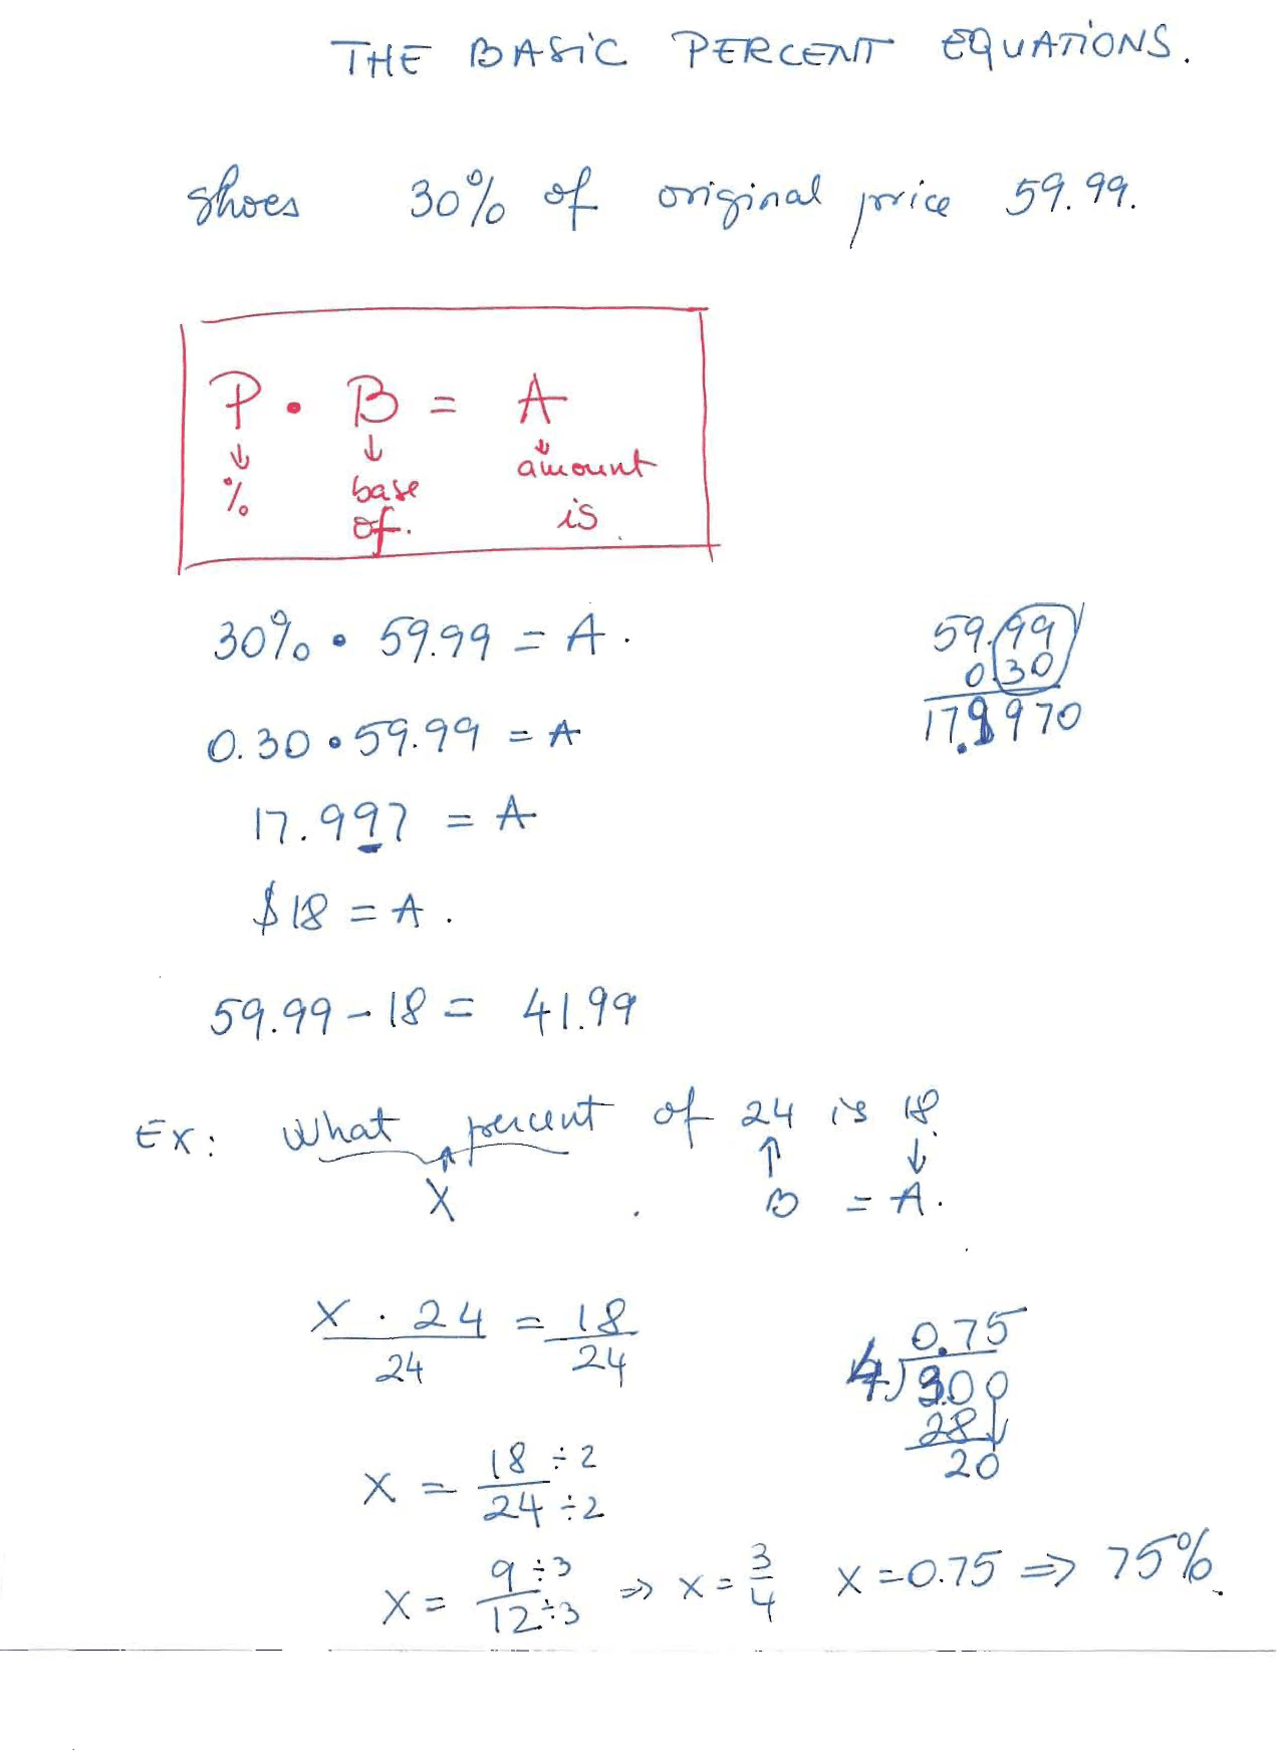 THE BASIC PERCENT EQUATIONS.
shoes 30% of original price 59.99.
P • B = A
↓ ↓ ↓
% base amount
of. is.
30% • 59.99 = A.
59.99
0.30
17.9970
0.30 • 59.99 = A
17.997 = A
$18 = A.
59.99 - 18 = 41.99
Ex: What percent of 24 is 18.
↑ ↑ ↓
X . B = A.
X . 24 = 18
24 24
0.75
4)3.00
28↓
20
X = 18 ÷ 2
24 ÷ 2
X = 9 ÷ 3 ⇒ X = 3 X = 0.75 ⇒ 75%.
12 ÷ 3 4